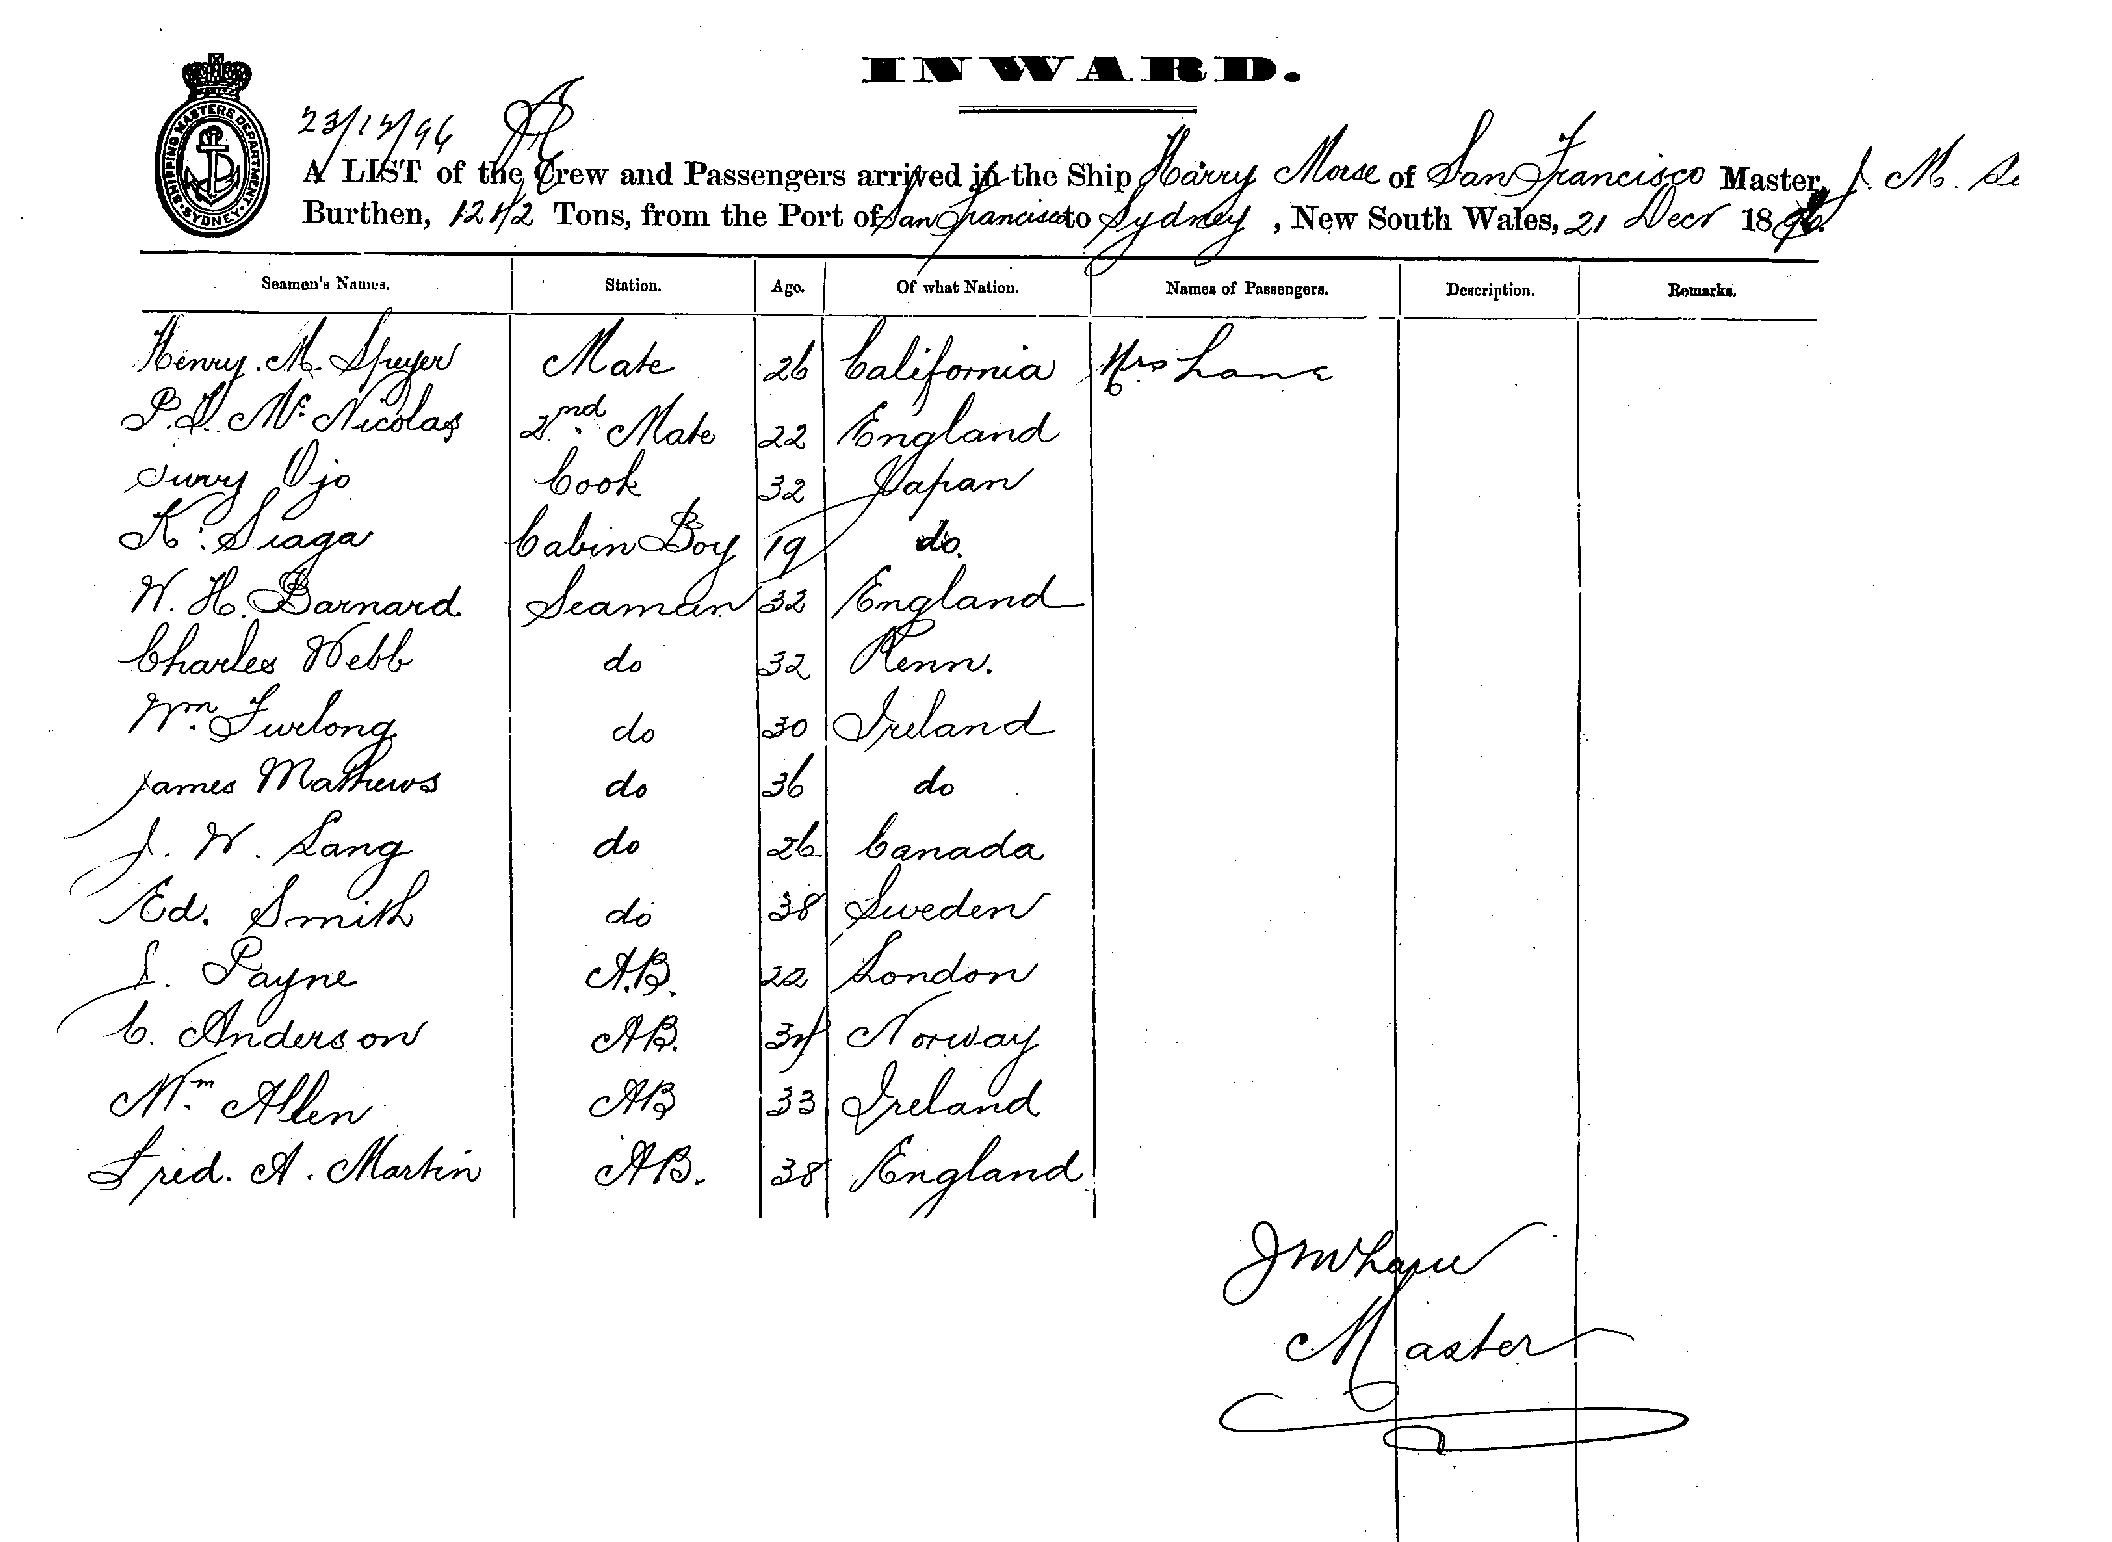 INWARD.
23/12/96
SHIPPING MASTERS DEPARTMENT. SYDNEY
A LIST of the Crew and Passengers arrived in the Ship Harry Morse of San Francisco Master, J. M.
Burthen, Tons, from the Port of San Francisco to Sydney, New South Wales, 21 Decr 1896.
Seamen's Names. Station. Age. Of what Nation. Names of Passengers. Description. Remarks.
Henry. M. Mate 26 California Mrs Lane
P. Mc Nicolas 2nd. Mate 22 England
Ojo Cook 32 Japan
K. Siaga Cabin Boy 19 do.
W. H. Barnard. Seaman 32 England
Charles Webb do 32 Penn.
Wm. Furlong do 30 Ireland
James Mathews do 36 do
J. W. Lang do 26 Canada
Ed. Smith do 38 Sweden
Payne A.B. 22 London
C. Anderson AB. 34 Norway
Wm. Allen AB 33 Ireland
Fred. A. Martin AB. 38 England
J M Lane
Master